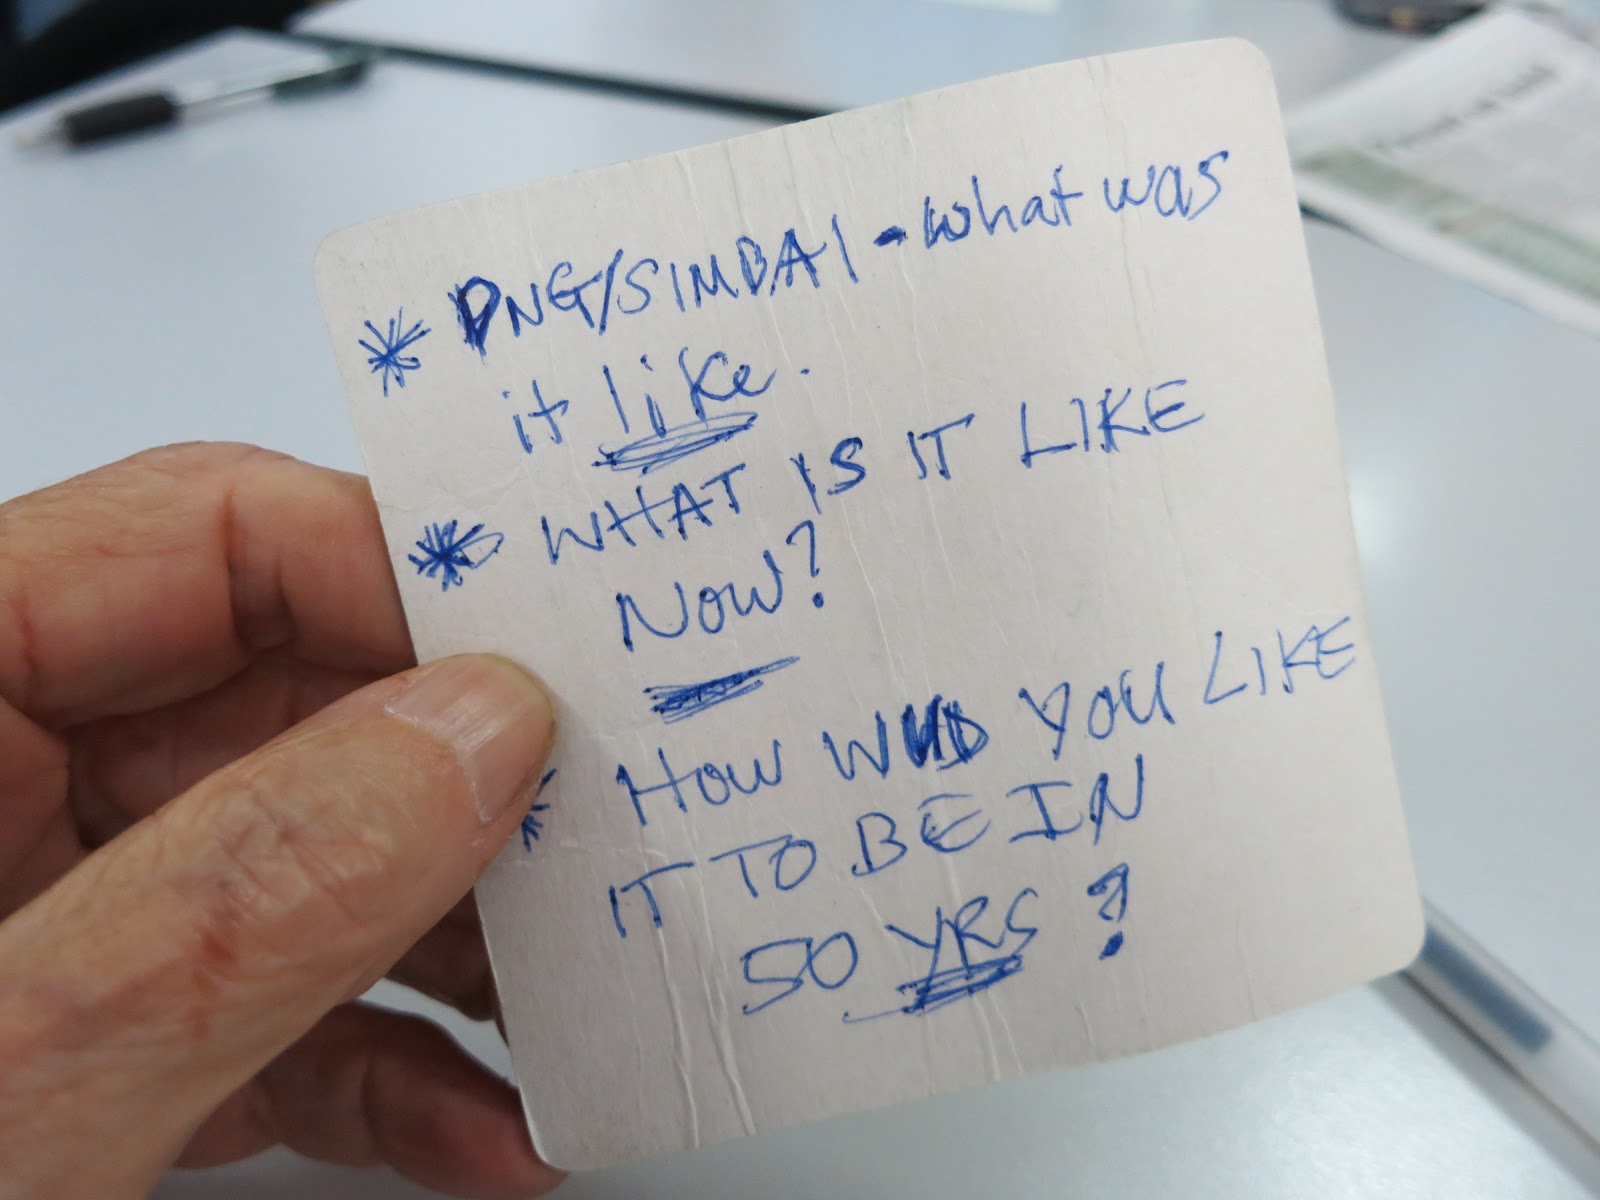 * PNG/SIMBAI - what was
it like.
* WHAT IS IT LIKE
NOW?
* HOW WUD YOU LIKE
IT TO BE IN
50 YRS?